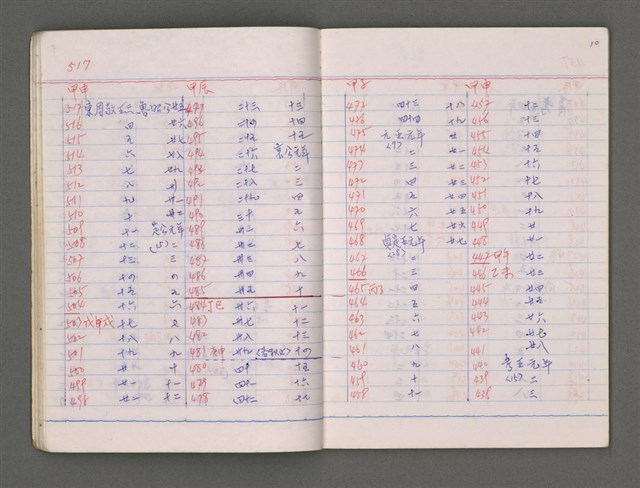 517
10
甲申 甲辰
甲子 甲申
517 東周敬王三 魯昭公廿五年 497 十三
516 四 廿六 496 十四
515 五 廿七 495 十五
514 六 廿八 494 哀公元年
513 七 廿九 493 二
512 八 卅 492 三
511 九 卅一 491 四
510 十 卅二 490 三十 五
509 十一 定公元年 489 卅一 六
508 十二 (15) 二 488 卅二 七
507 十三 三 487 卅三 八
506 十四 四 486 卅四 九
505 十五 五 485 卅五 十
504 十六 六 484 丁巳 卅六 十一
503 戊戌 十七 七 483 卅七 十二
502 十八 八 482 卅八 十三
501 十九 九 481 庚申 卅九 十四
500 廿 十 480 四十 十五
499 廿一 十一 479 四十一 十六
498 廿二 十二 478 四十二 十七
477 四十三 十八 457 十二
476 四十四 十九 456 十三
475 元王元年 廿 455 十四
(7)
474 二 廿一 454 十五
473 三 廿二 453 十六
472 四 廿三 452 十七
471 五 廿四 451 十八
470 六 廿五 450 十九
469 七 廿六 449 廿
468 貞定王元年 廿七 448 廿一
(28)
467 二 447 甲午 廿二
466 三 446 乙未 廿三
465 丙子 四 445 廿四
464 五 444 廿五
463 六 443 廿六
462 七 442 廿七
461 八 441 廿八
460 九 440 考王元年
459 十 439 (15) 二
458 十一 438 三